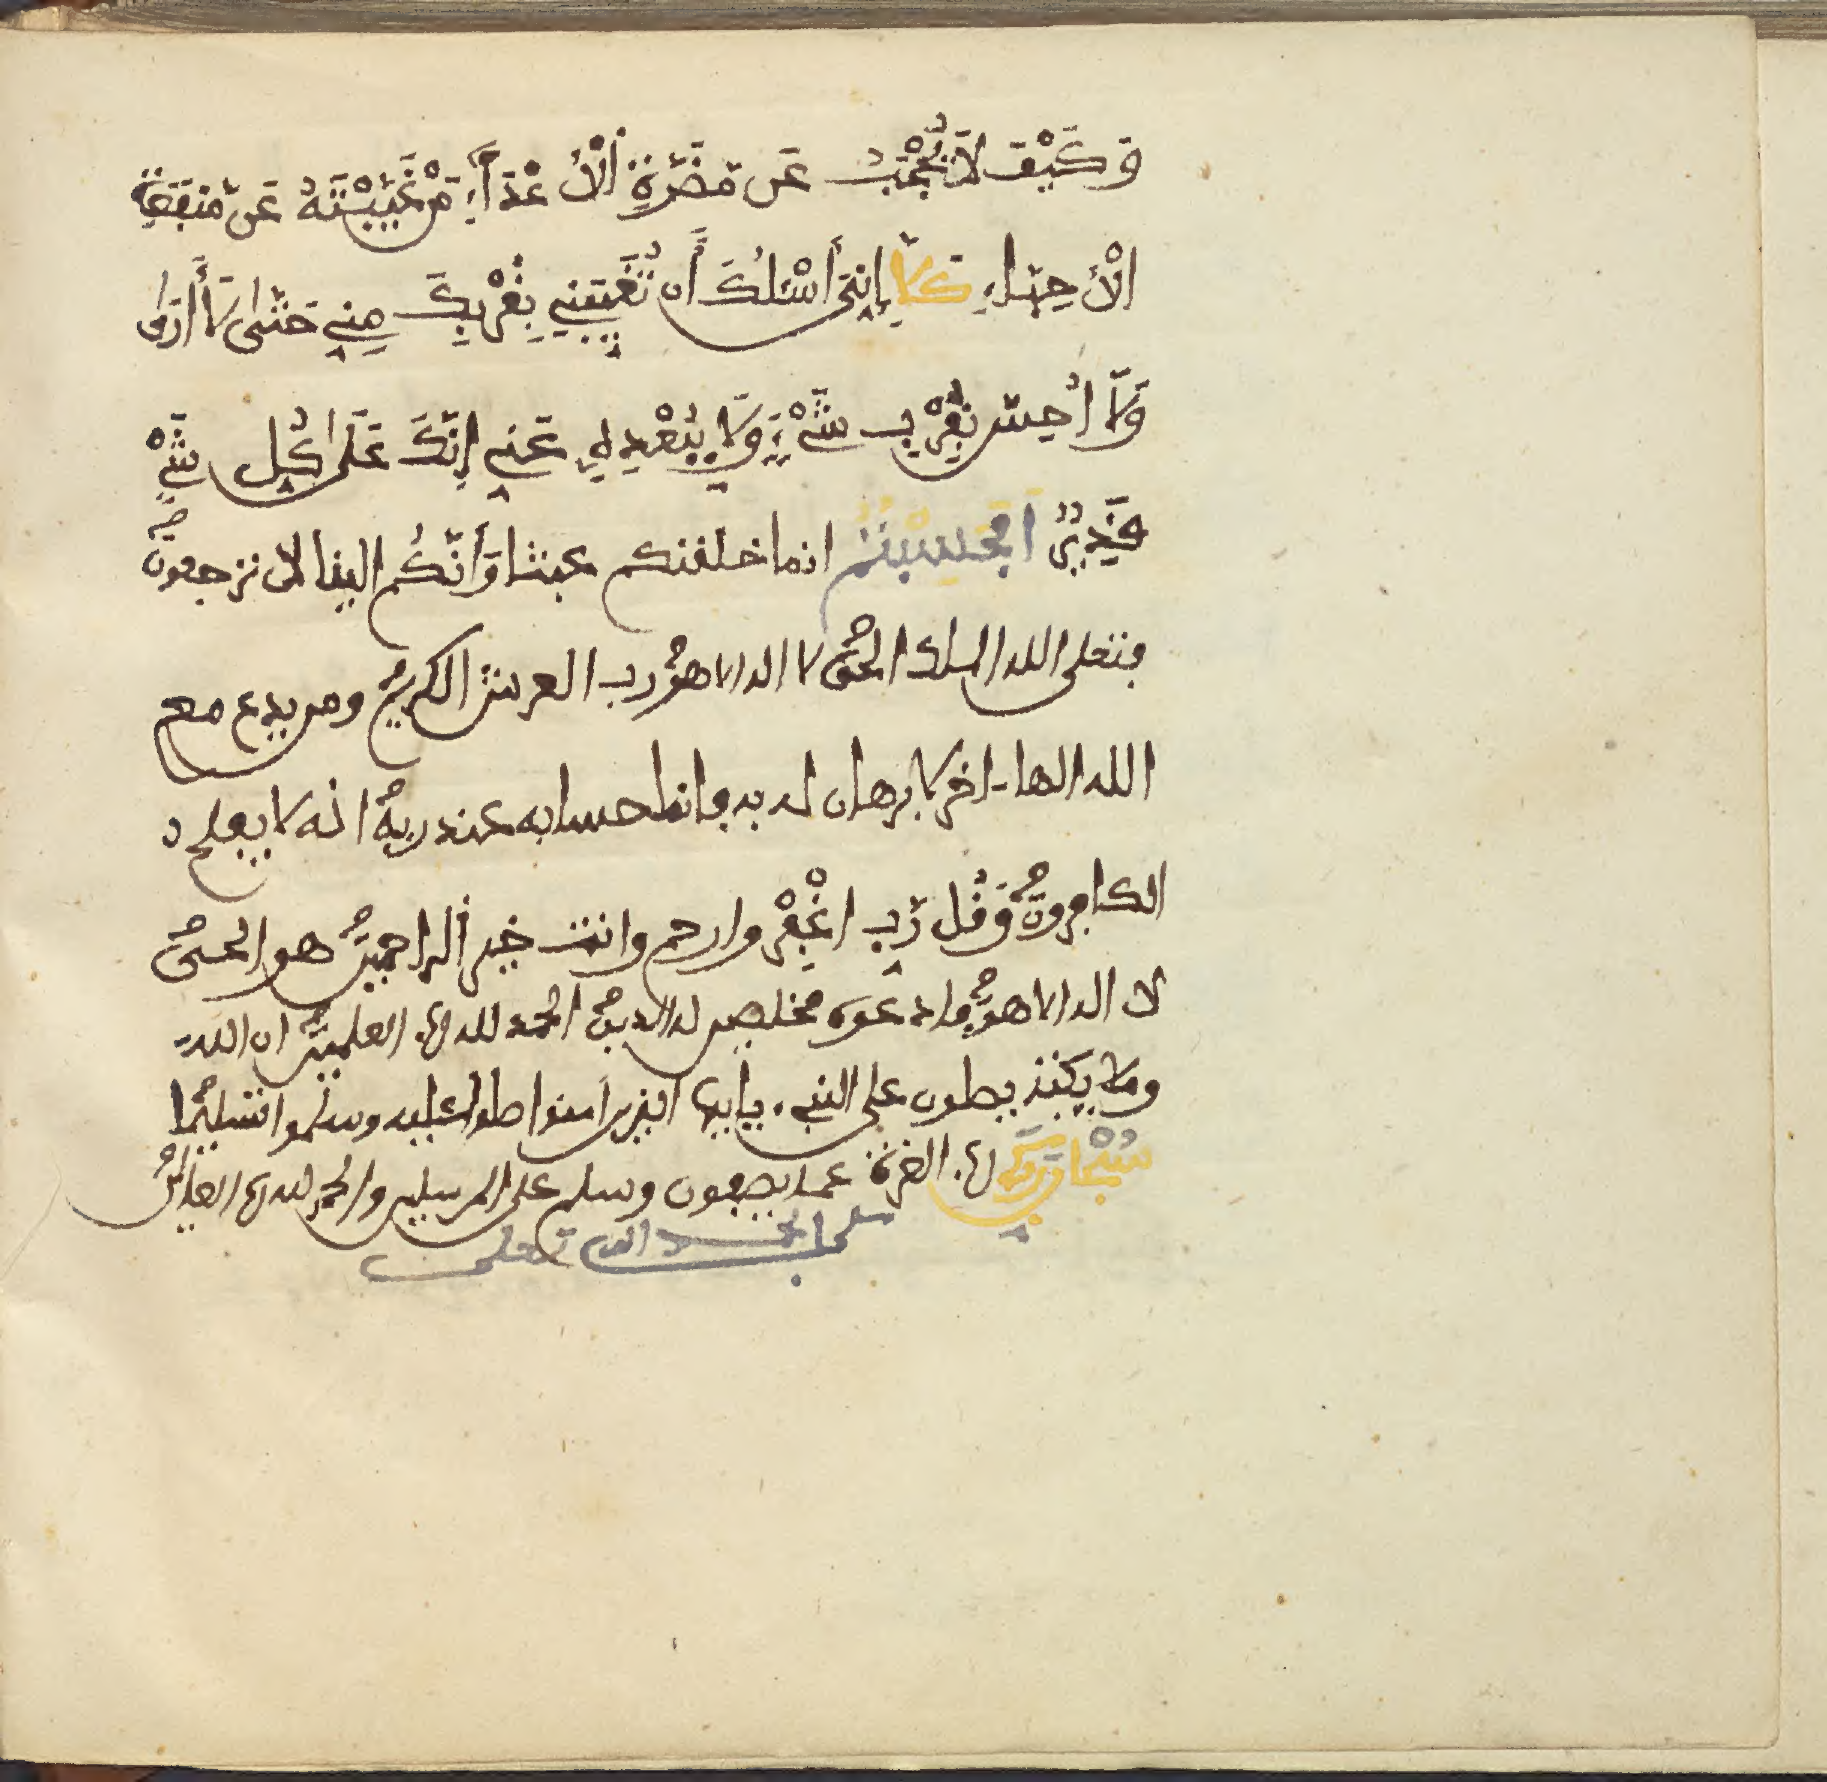 وَكَيْفَ لَا يُحْجَبُ عَن مَّضَرَّةِ اَلْأَعْدَآءِ مَنْ غَيَّبْتَهُ عَن مَّنفَعَةِ
الْأَحِبَّاءِ كَلَّا إِنِّي أَسْئَلُكَ أَن تُغَيِّبَنِي بِقُرْبِكَ مِنِّي حَتَّى لَا أَرَى
وَلَا أُحِسَّ بِقُرْبِ شَيْءٍ وَلَا بِبُعْدِهِ عَنِّي إِنَّكَ عَلَى كُلِّ شَيْءٍ
قَدِيرٌ افحسبتم انما خلقنكم عبثا وَأَنَّكُم الينا لا ترجعون
فتعلى الله الملك الحق لا اله الا هو رب العرش الكريم ومن يدع مع
الله الها اخر لا برهان له به فانما حسابه عند ربه انه لا يفلح
الكافرون وَقُل رَّبِّ اغْفِرْ وارحم وانت خير الراحمين هو الحي
لا اله الا هو فادعوه مخلصين له الدين الحمد لله رب العلمين ان الله
وملايكته يصلون على النبيء يايها الذين امنوا صلوا عليه وسلموا تسليما
سُبْحَانَ رَبِّكَ رب العزة عما يصفون وسلم على المرسلين والحمد لله رب العالمين
بحمد الله تعلى